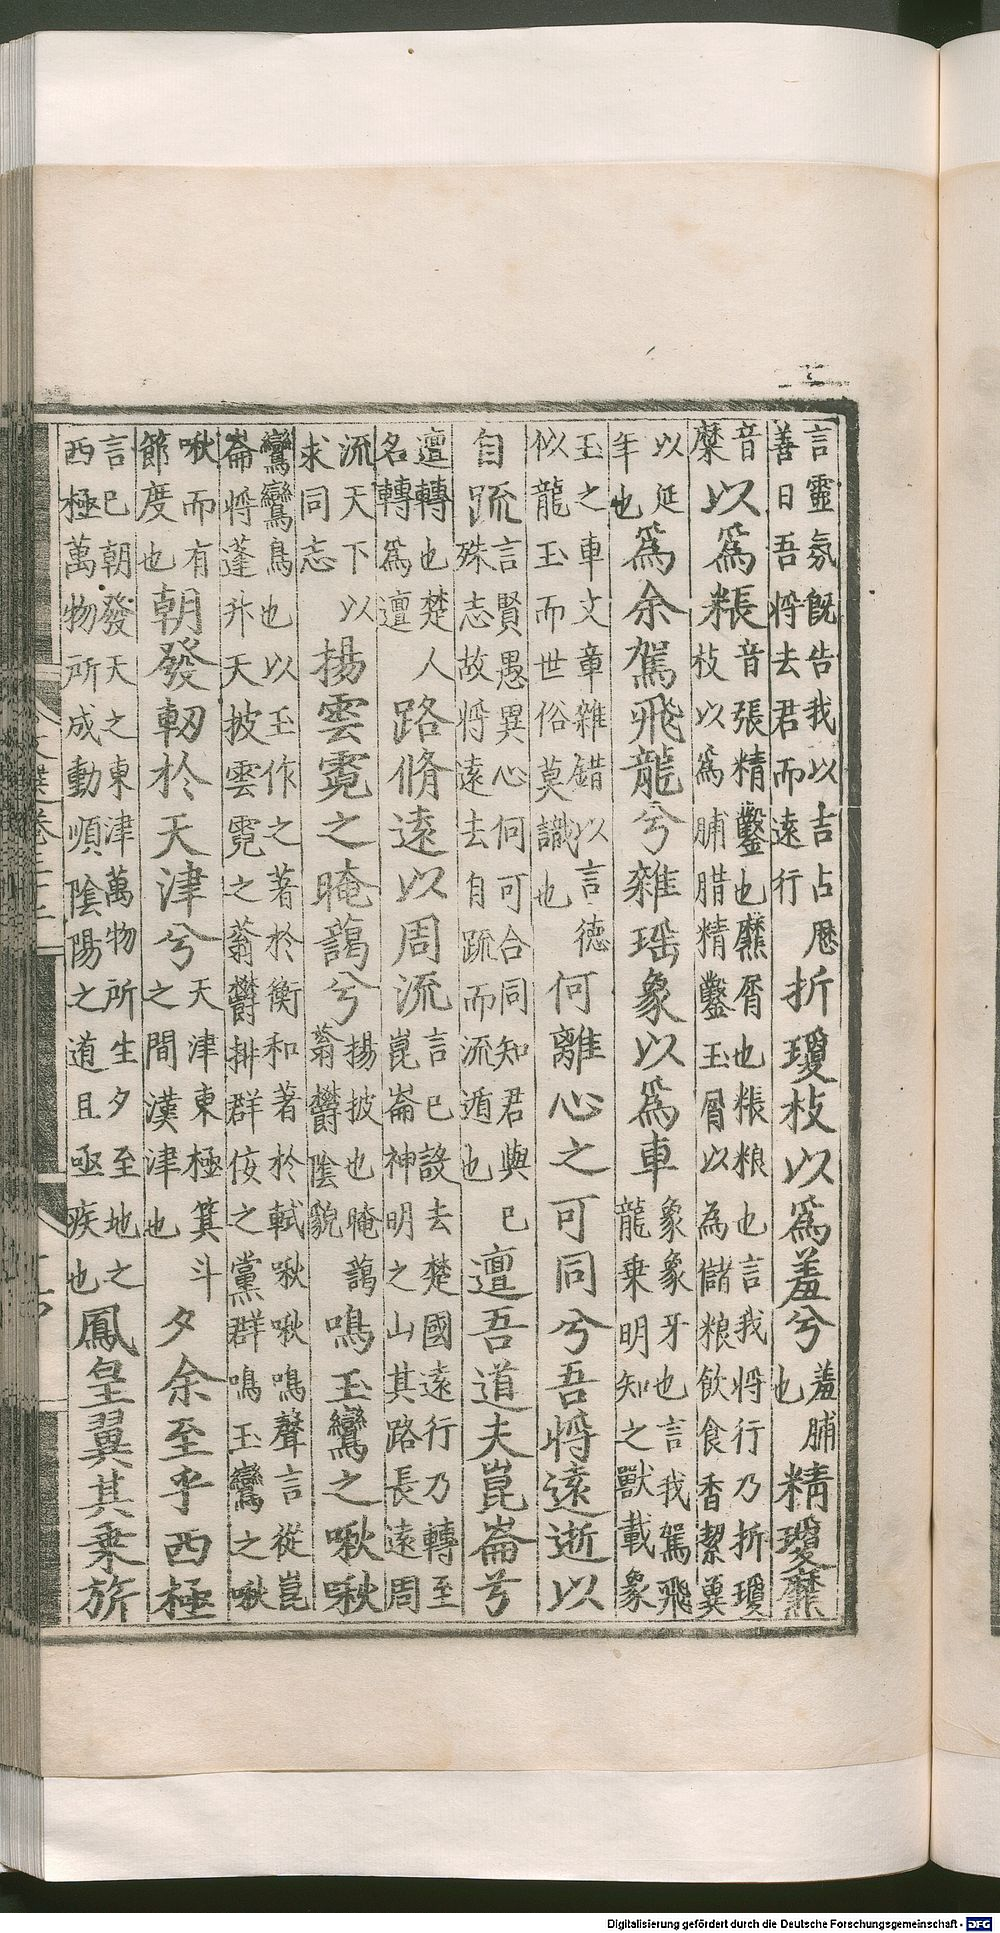 言靈氛旣告我以吉占歷善日吾將去君而遠行折瓊枝以爲羞兮羞脯也精瓊爢
音糜以爲粻音張精鑿也爢屑也粻粮也言我將行乃折瓊枝以爲脯腊精鑿玉屑以為儲粮飲食香潔冀
以延年也爲余駕飛龍兮雜瑶象以爲車象象牙也言我駕飛龍乗明知之獸載象
玉之車文章雜錯以言德似龍玉而世俗莫識也何離心之可同兮吾將遠逝以
自疏言賢愚異心何可合同知君與已殊志故將遠去自疏而流遁也邅吾道夫崑崙兮
邅轉也楚人名轉爲邅路脩遠以周流言已設去楚國遠行乃轉至崑崙神明之山其路長遠周
流天下以求同志揚雲霓之晻藹兮揚披也晻藹蓊鬱陰貌鳴玉鸞之啾啾
鸞鸞鳥也以玉作之著於衡和著於軾啾啾鳴聲言從崑崙將蓬升天披雲霓之蓊鬱排群佞之黨群鳴玉鸞之啾
啾而有節度也朝發軔於天津兮天津東極箕斗之間漢津也夕余至乎西極
言已朝發天之東津萬物所生夕至地之西極萬物所成動順陰陽之道且亟疾也鳳皇翼其乗旂
Digitalisierung gefördert durch die Deutsche Forschungsgemeinschaft - DFG